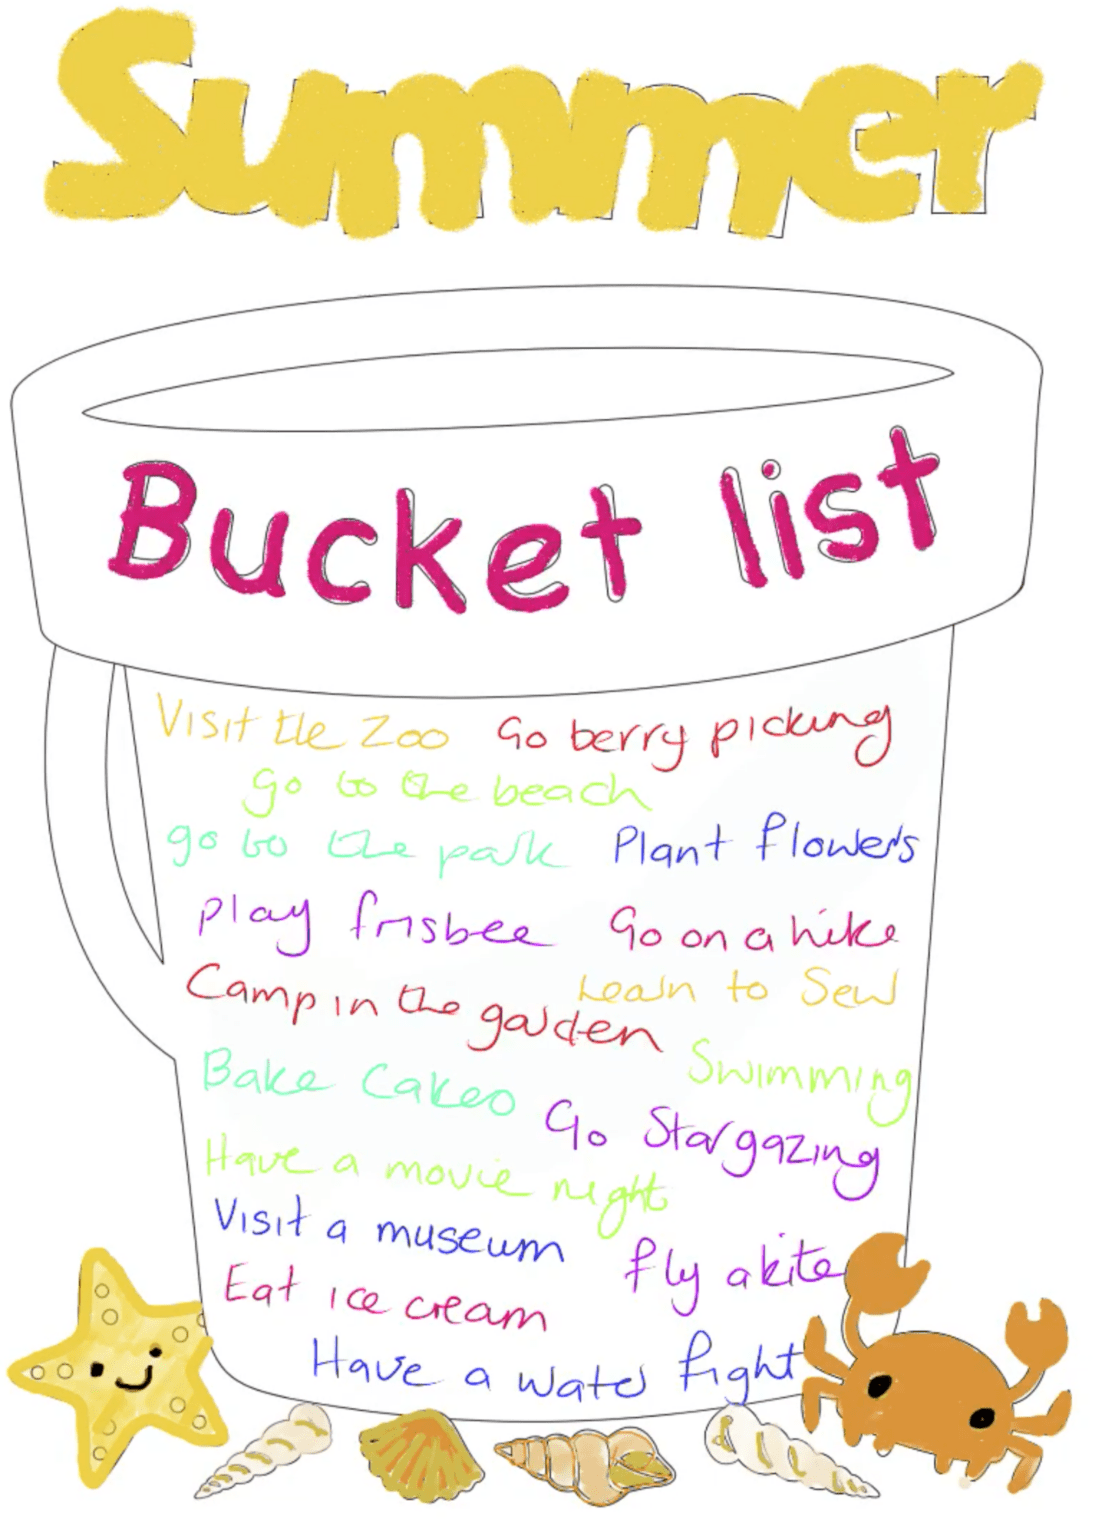 Summer
Bucket list
Visit the Zoo Go berry picking
go to the beach
go to the park Plant flowers
play frisbee Go on a hike
Camp in the garden Learn to Sew
Bake Cakes Swimming
Go Stargazing
Have a movie night
Visit a museum fly a kite
Eat ice cream
Have a water fight